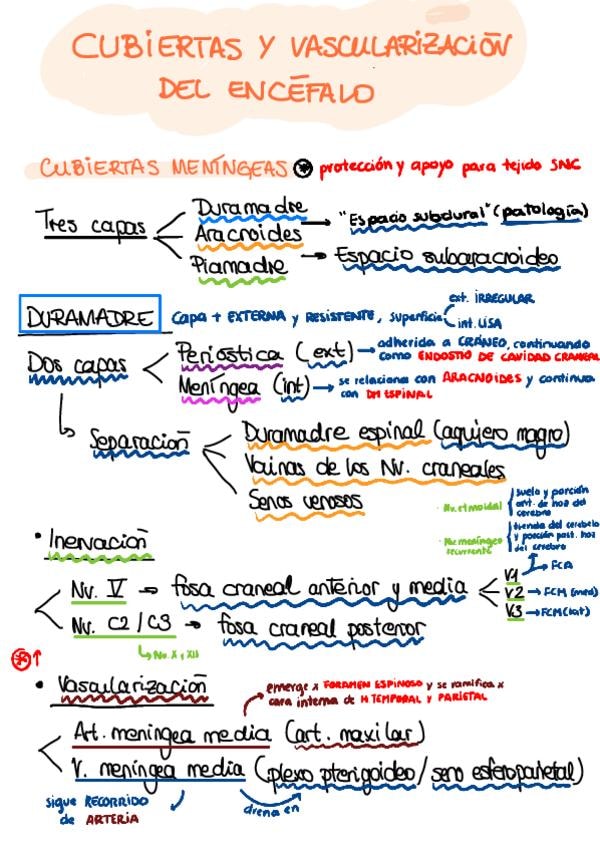 CUBIERTAS Y VASCULARIZACIÓN
DEL ENCÉFALO
CUBIERTAS MENÍNGEAS * protección y apoyo para tejido SNC
Tres capas
Duramadre
Aracnoides → "Espacio subdural" (patología)
Piamadre → Espacio subaracnoideo
DURAMADRE capa + EXTERNA y RESISTENTE, superficie
ext. IRREGULAR
int. LISA
Dos capas
Perióstica (ext) → adherida a CRÁNEO, continuando
como ENDOSTIO DE CAVIDAD CRANEAL
Meníngea (int) → se relaciona con ARACNOIDES y continua
con DM ESPINAL
Separación
Duramadre espinal (agujero magno)
Vainas de los Nv. craneales
Senos venosos
• Inervación
· Nv. etmoidal
suelo y porción
ant. de hoz del
cerebro
· Nv. meníngeo
recurrente
tienda del cerebelo
y porción post. hoz
del cerebro
Nv. V → fosa craneal anterior y media
V1 → FCA
V2 → FCM (med)
V3 → FCM (lat)
Nv. C2 / C3 → fosa craneal posterior
Nv. X, XII
* ↑
• Vascularización
emerge x FORAMEN ESPINOSO y se ramifica x
cara interna de H TEMPORAL y PARIETAL
Art. meníngea media (art. maxilar)
V. meníngea media (plexo pterigoideo / seno esfenoparietal)
sigue RECORRIDO
de ARTERIA
drena en